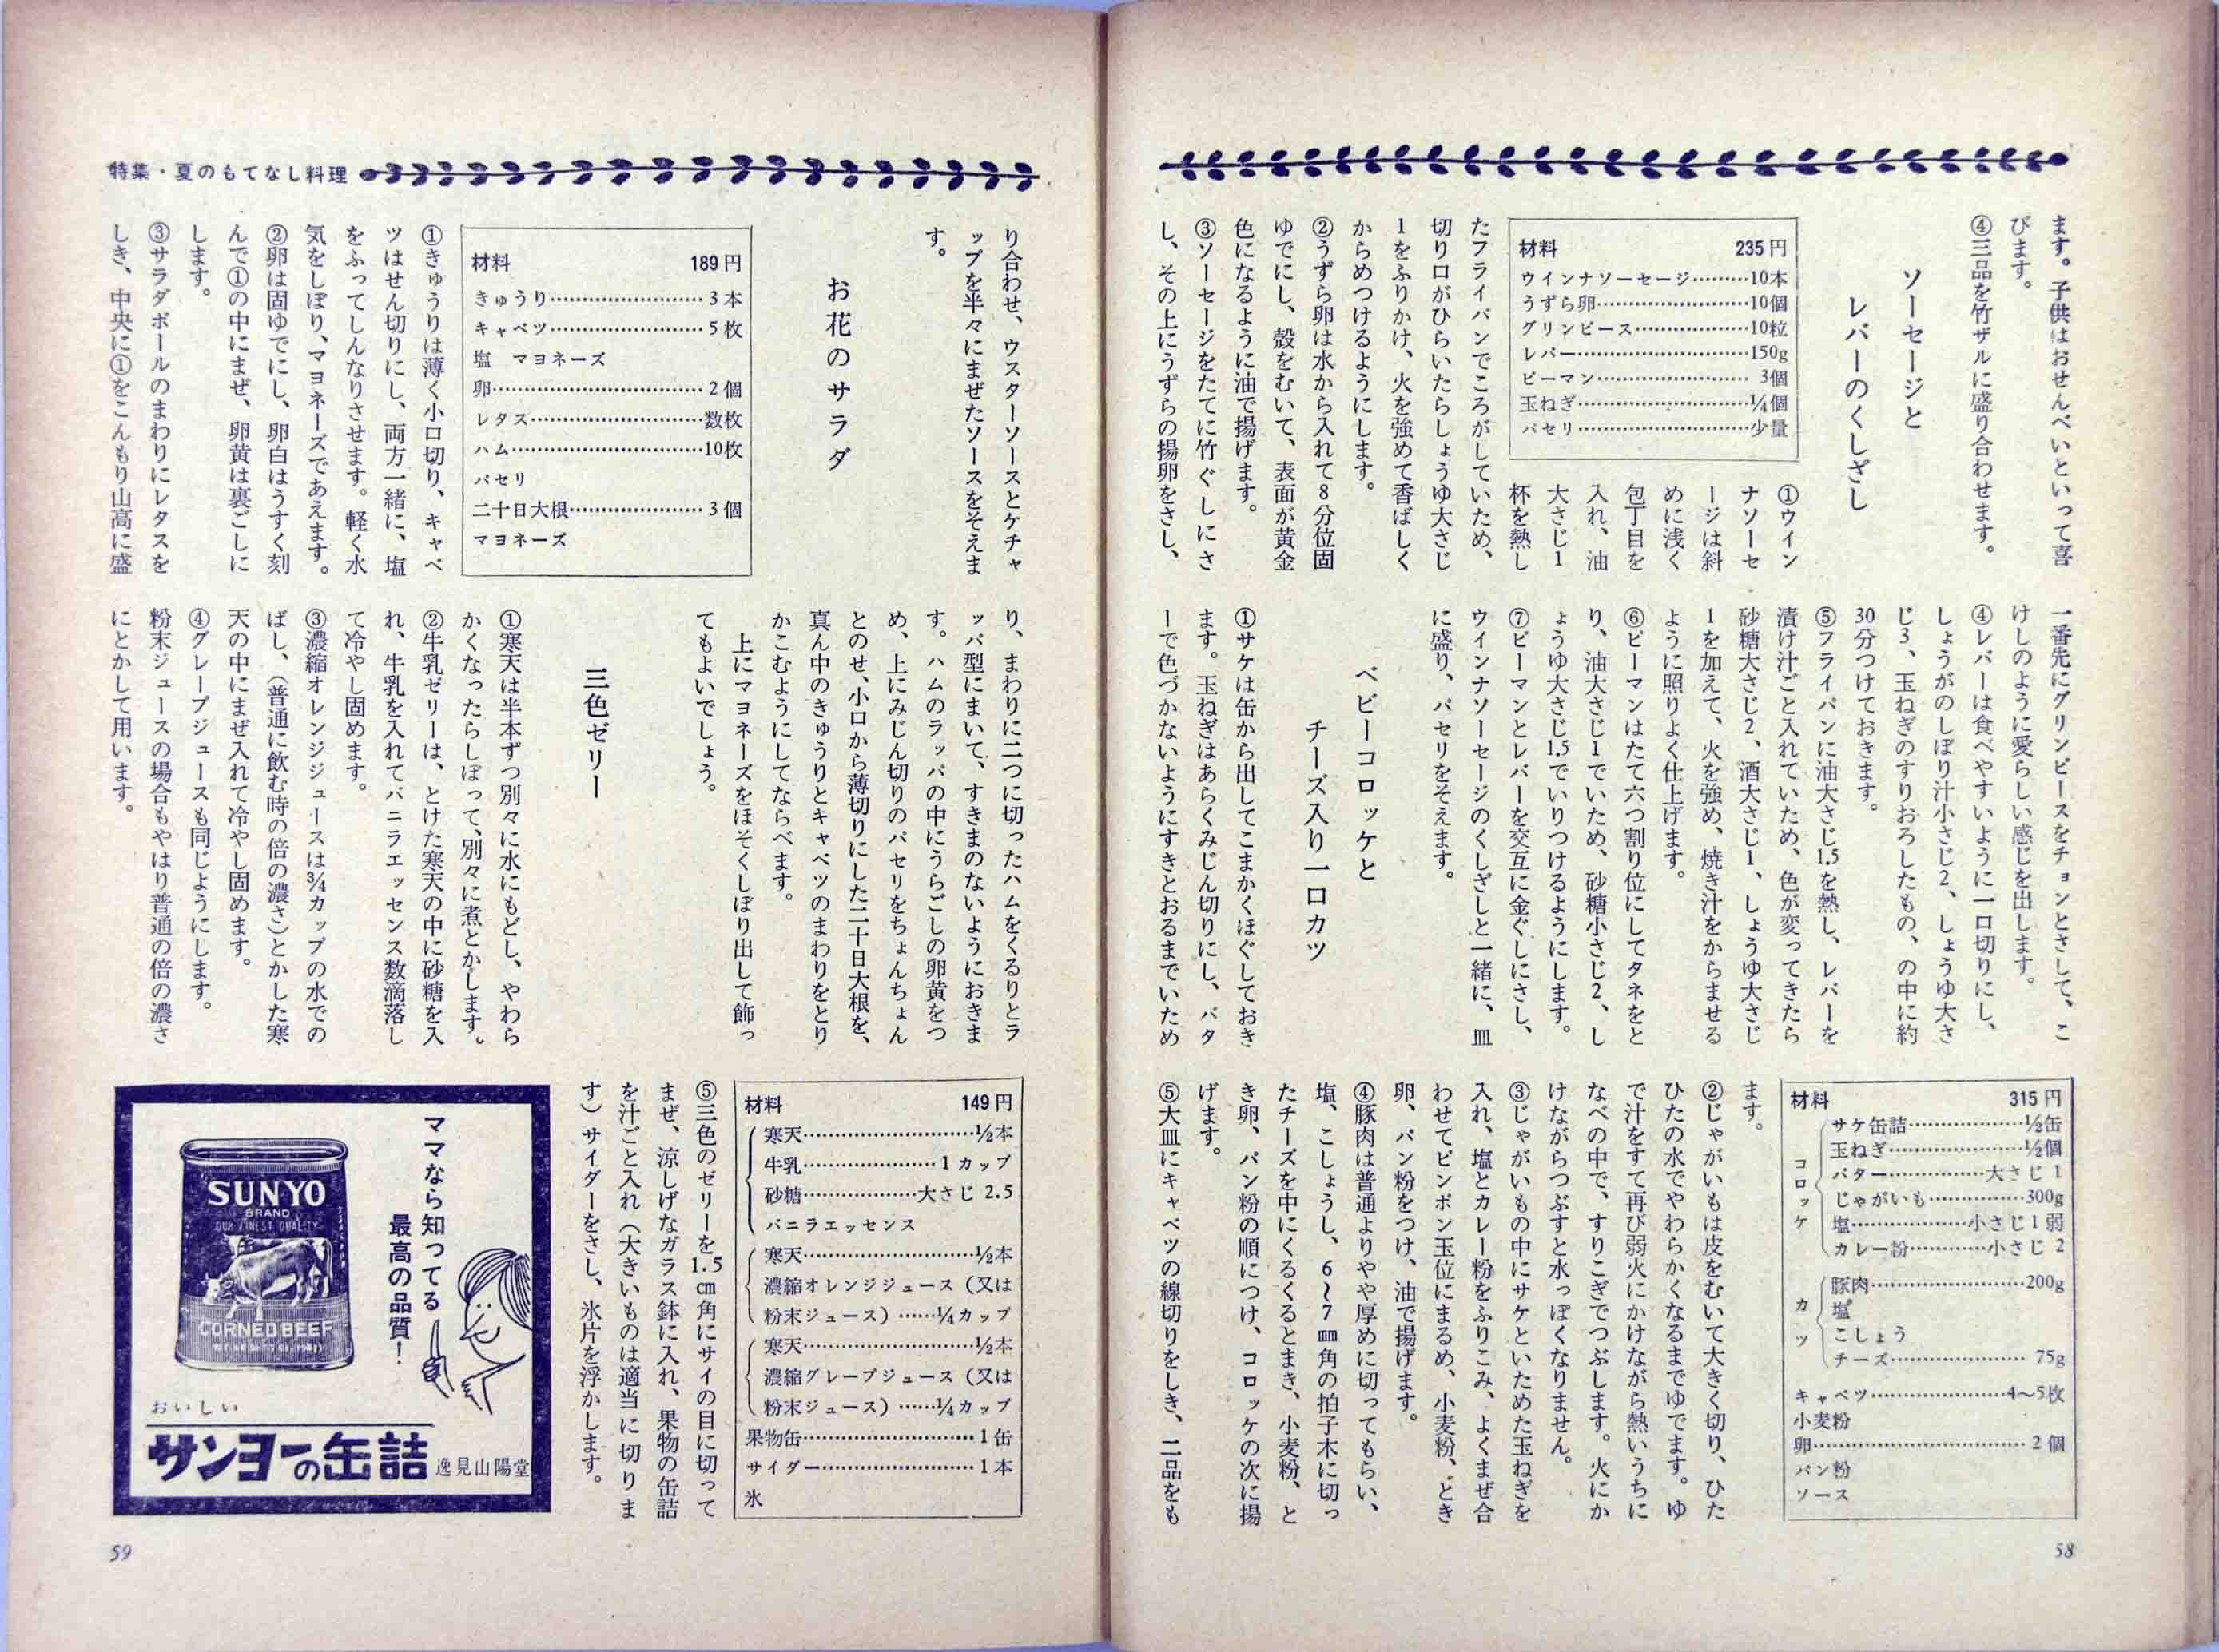 ます。子供はおせんべいといって喜
びます。
④三品を竹ザルに盛り合わせます。
ソーセージと
レバーのくしざし
材料 235円
ウインナソーセージ………10本
うずら卵………………………10個
グリンピース…………………10粒
レバー…………………………150g
ピーマン………………………3個
玉ねぎ…………………………¼個
パセリ…………………………少量
①ウイン
ナソーセ
ージは斜
めに浅く
包丁目を
入れ、油
大さじ1
杯を熱し
たフライパンでころがしていため、
切り口がひらいたらしょうゆ大さじ
1をふりかけ、火を強めて香ばしく
からめつけるようにします。
②うずら卵は水から入れて8分位固
ゆでにし、殻をむいて、表面が黄金
色になるように油で揚げます。
③ソーセージをたてに竹ぐしにさ
し、その上にうずらの揚卵をさし、
一番先にグリンピースをチョンとさして、こ
けしのように愛らしい感じを出します。
④レバーは食べやすいように一口切りにし、
しょうがのしぼり汁小さじ2、しょうゆ大さ
じ3、玉ねぎのすりおろしたもの、の中に約
30分つけておきます。
⑤フライパンに油大さじ1.5を熱し、レバーを
漬け汁ごと入れていため、色が変ってきたら
砂糖大さじ2、酒大さじ1、しょうゆ大さじ
1を加えて、火を強め、焼き汁をからませる
ように照りよく仕上げます。
⑥ピーマンはたて六つ割り位にしてタネをと
り、油大さじ1でいため、砂糖小さじ2、し
ょうゆ大さじ1.5でいりつけるようにします。
⑦ピーマンとレバーを交互に金ぐしにさし、
ウインナソーセージのくしざしと一緒に、皿
に盛り、パセリをそえます。
ベビーコロッケと
チーズ入り一口カツ
①サケは缶から出してこまかくほぐしておき
ます。玉ねぎはあらくみじん切りにし、バタ
ーで色づかないようにすきとおるまでいため
材料 315円
コロッケ
サケ缶詰………………………½缶
玉ねぎ…………………………½個
バター……………………大さじ 1
じゃがいも……………………300g
塩……………………小さじ1弱
カレー粉…………………小さじ 2
カツ
豚肉……………………………200g
塩
こしょう
チーズ…………………………75g
キャベツ………………………4〜5枚
小麦粉
卵………………………………2個
パン粉
ソース
ます。
②じゃがいもは皮をむいて大きく切り、ひた
ひたの水でやわらかくなるまでゆでます。ゆ
で汁をすて再び弱火にかけながら熱いうちに
なべの中で、すりこぎでつぶします。火にか
けながらつぶすと水っぽくなりません。
③じゃがいもの中にサケといためた玉ねぎを
入れ、塩とカレー粉をふりこみ、よくまぜ合
わせてピンポン玉位にまるめ、小麦粉、とき
卵、パン粉をつけ、油で揚げます。
④豚肉は普通よりやや厚めに切ってもらい、
塩、こしょうし、6〜7㎜角の拍子木に切っ
たチーズを中にくるくるとまき、小麦粉、と
き卵、パン粉の順につけ、コロッケの次に揚
げます。
⑤大皿にキャベツの線切りをしき、二品をも
58
特集・夏のもてなし料理
り合わせ、ウスターソースとケチャ
ップを半々にまぜたソースをそえま
す。
お花のサラダ
材料 189円
きゅうり………………………3本
キャベツ………………………5枚
塩 マヨネーズ
卵………………………………2個
レタス…………………………数枚
ハム……………………………10枚
パセリ
二十日大根……………………3個
マヨネーズ
①きゅうりは薄く小口切り、キャベ
ツはせん切りにし、両方一緒に、塩
をふってしんなりさせます。軽く水
気をしぼり、マヨネーズであえます。
②卵は固ゆでにし、卵白はうすく刻
んで①の中にまぜ、卵黄は裏ごしに
します。
③サラダボールのまわりにレタスを
しき、中央に①をこんもり山高に盛
り、まわりに二つに切ったハムをくるりとラ
ッパ型にまいて、すきまのないようにおきま
す。ハムのラッパの中にうらごしの卵黄をつ
め、上にみじん切りのパセリをちょんちょん
とのせ、小口から薄切りにした二十日大根を、
真ん中のきゅうりとキャベツのまわりをとり
かこむようにしてならべます。
上にマヨネーズをほそくしぼり出して飾っ
てもよいでしょう。
三色ゼリー
①寒天は半本ずつ別々に水にもどし、やわら
かくなったらしぼって、別々に煮とかします。
②牛乳ゼリーは、とけた寒天の中に砂糖を入
れ、牛乳を入れてバニラエッセンス数滴落し
て冷やし固めます。
③濃縮オレンジジュースは¾カップの水での
ばし、（普通に飲む時の倍の濃さ）とかした寒
天の中にまぜ入れて冷やし固めます。
④グレープジュースも同じようにします。
粉末ジュースの場合もやはり普通の倍の濃さ
にとかして用います。
材料 149円
寒天……………………………½本
牛乳………………………1カップ
砂糖…………………大さじ 2.5
バニラエッセンス
寒天……………………………½本
濃縮オレンジジュース（又は
粉末ジュース）……¼カップ
寒天……………………………½本
濃縮グレープジュース（又は
粉末ジュース）……¼カップ
果物缶…………………………1缶
サイダー………………………1本
氷
⑤三色のゼリーを1.5㎝角にサイの目に切って
まぜ、涼しげなガラス鉢に入れ、果物の缶詰
を汁ごと入れ（大きいものは適当に切りま
す）サイダーをさし、氷片を浮かします。
ママなら知ってる
最高の品質！
SUNYO
BRAND
OUR FINEST QUALITY
CORNED BEEF
おいしい
サンヨーの缶詰 逸見山陽堂
59